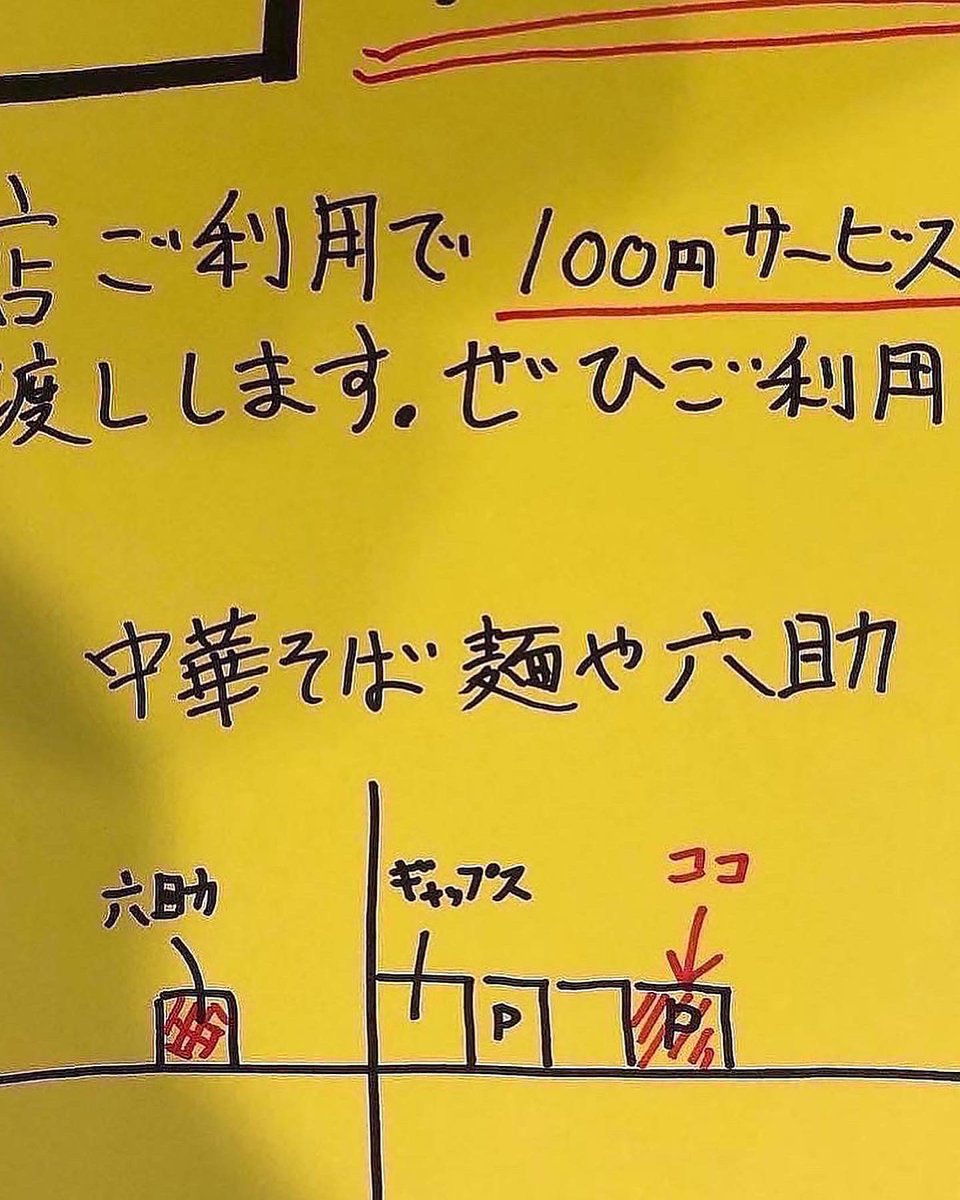 店ご利用で100円サービス
渡しします。ぜひご利用
中華そば 麺や六助
六助
ギャップス
ココ
P
P